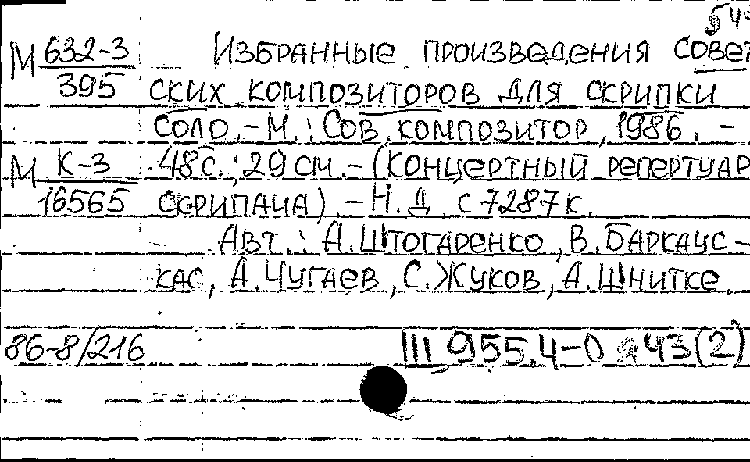 М 632-3/395 Избранные произведения совет-
ских композиторов для скрипки
соло. - М.: Сов. композитор, 1986. -
М К-3/16565 48с.; 29см. - (Концертный репертуар
скрипача). - Н.Д. с7287к.
Авт.: А. Штогаренко, В. Баркаус-
кас, А. Чугаев, С. Жуков, А. Шнитке.
86-8/216 Ш 955.4-0 я 43(2)